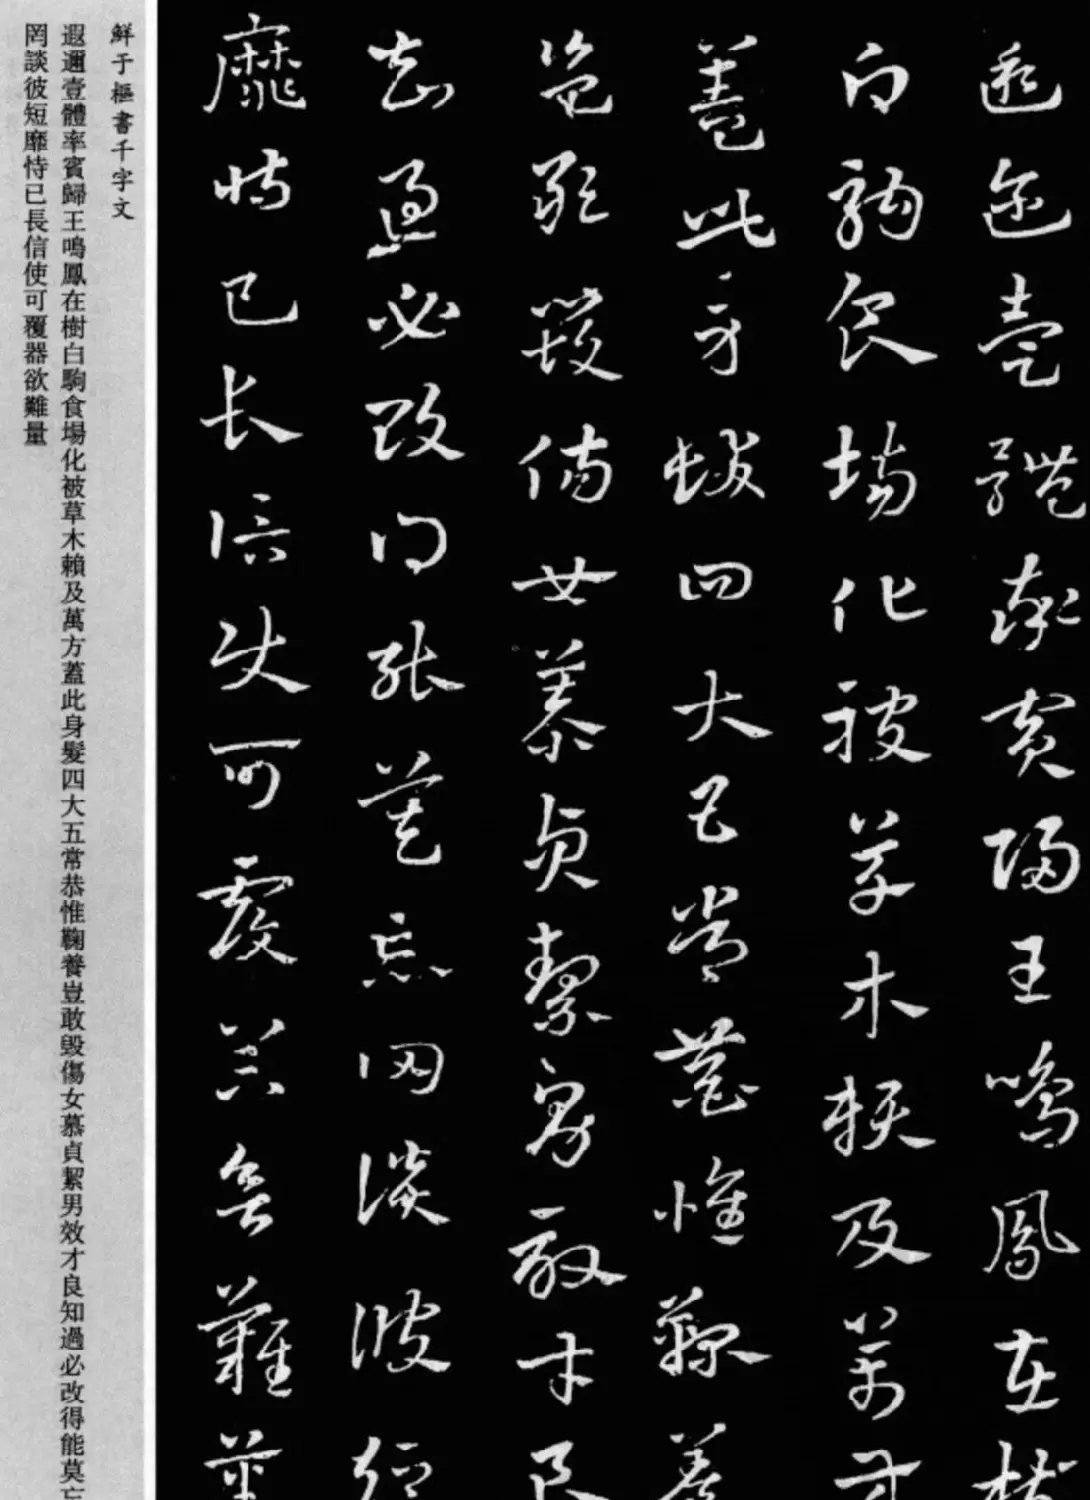 遐邇壹體率賓歸王鳴鳳在樹
白駒食場化被草木賴及萬方
蓋此身髮四大五常恭惟鞠養
豈敢毀傷女慕貞絜男效才良
知過必改得能莫忘罔談彼短
靡恃已長信使可覆器欲難量
鮮于樞書千字文
遐邇壹體率賓歸王鳴鳳在樹白駒食場化被草木賴及萬方蓋此身髮四大五常恭惟鞠養豈敢毀傷女慕貞絜男效才良知過必改得能莫忘
罔談彼短靡恃已長信使可覆器欲難量